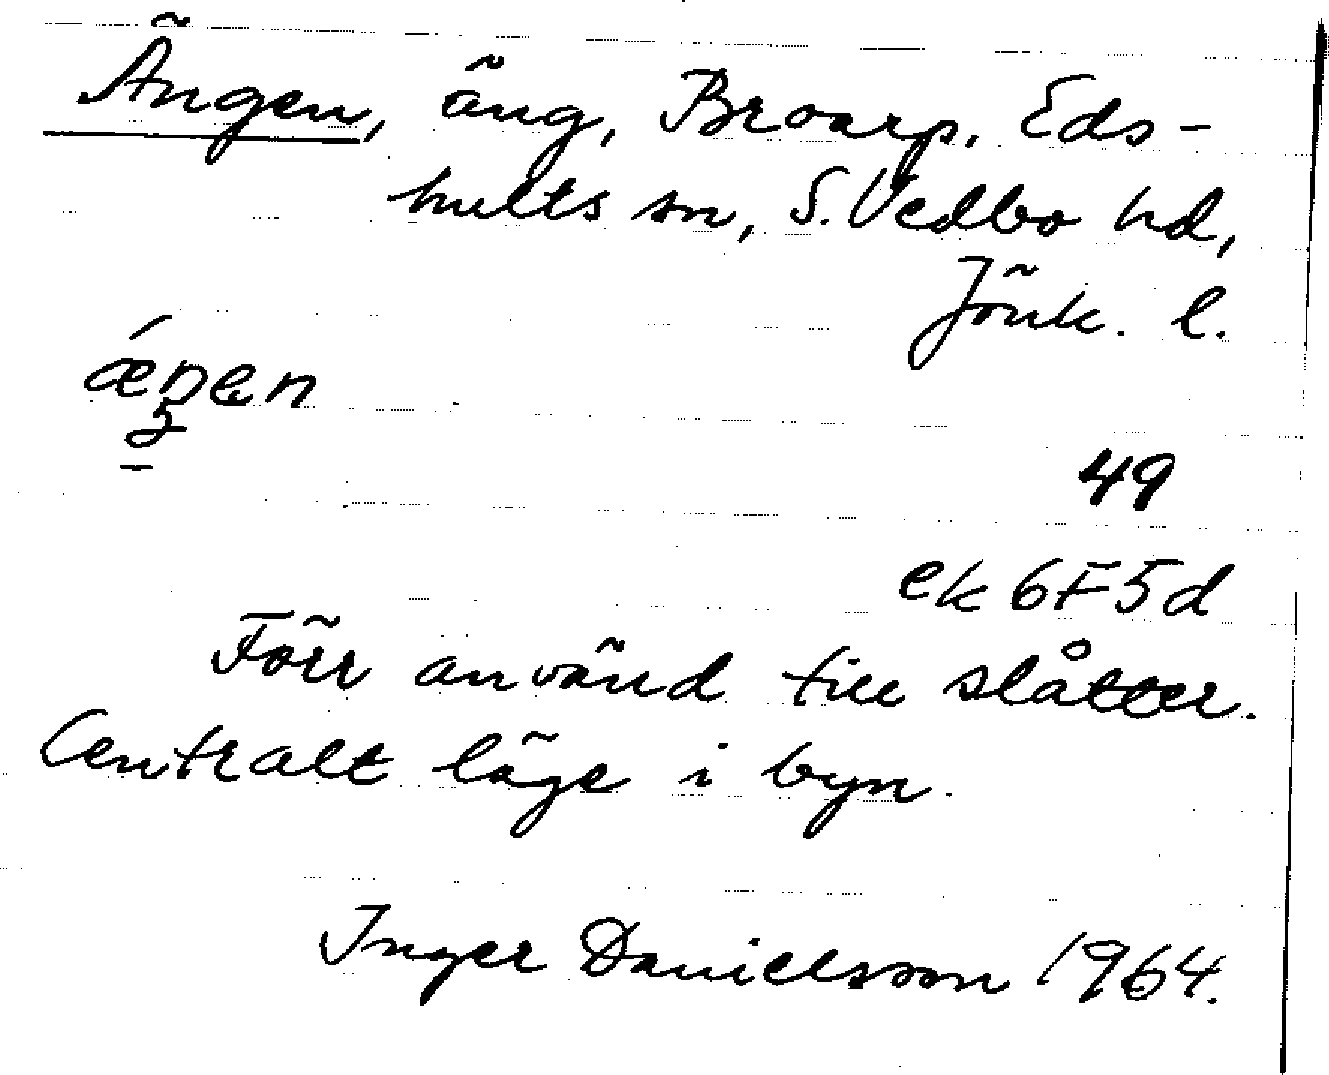 Ängen, äng, Broarp. Eds-
hults sn, S. Vedbo hd,
Jönk. l.
ǽŋen
5
49
ek 6F5d
Förr använd till slåtter.
Centralt läge i byn.
Inger Danielsson 1964.